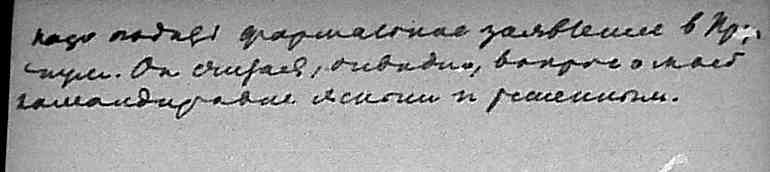 надо подать формальное заявление в Пре-
зидиум. Он считает, очевидно, вопрос о моей
командировке ясным и решенным.